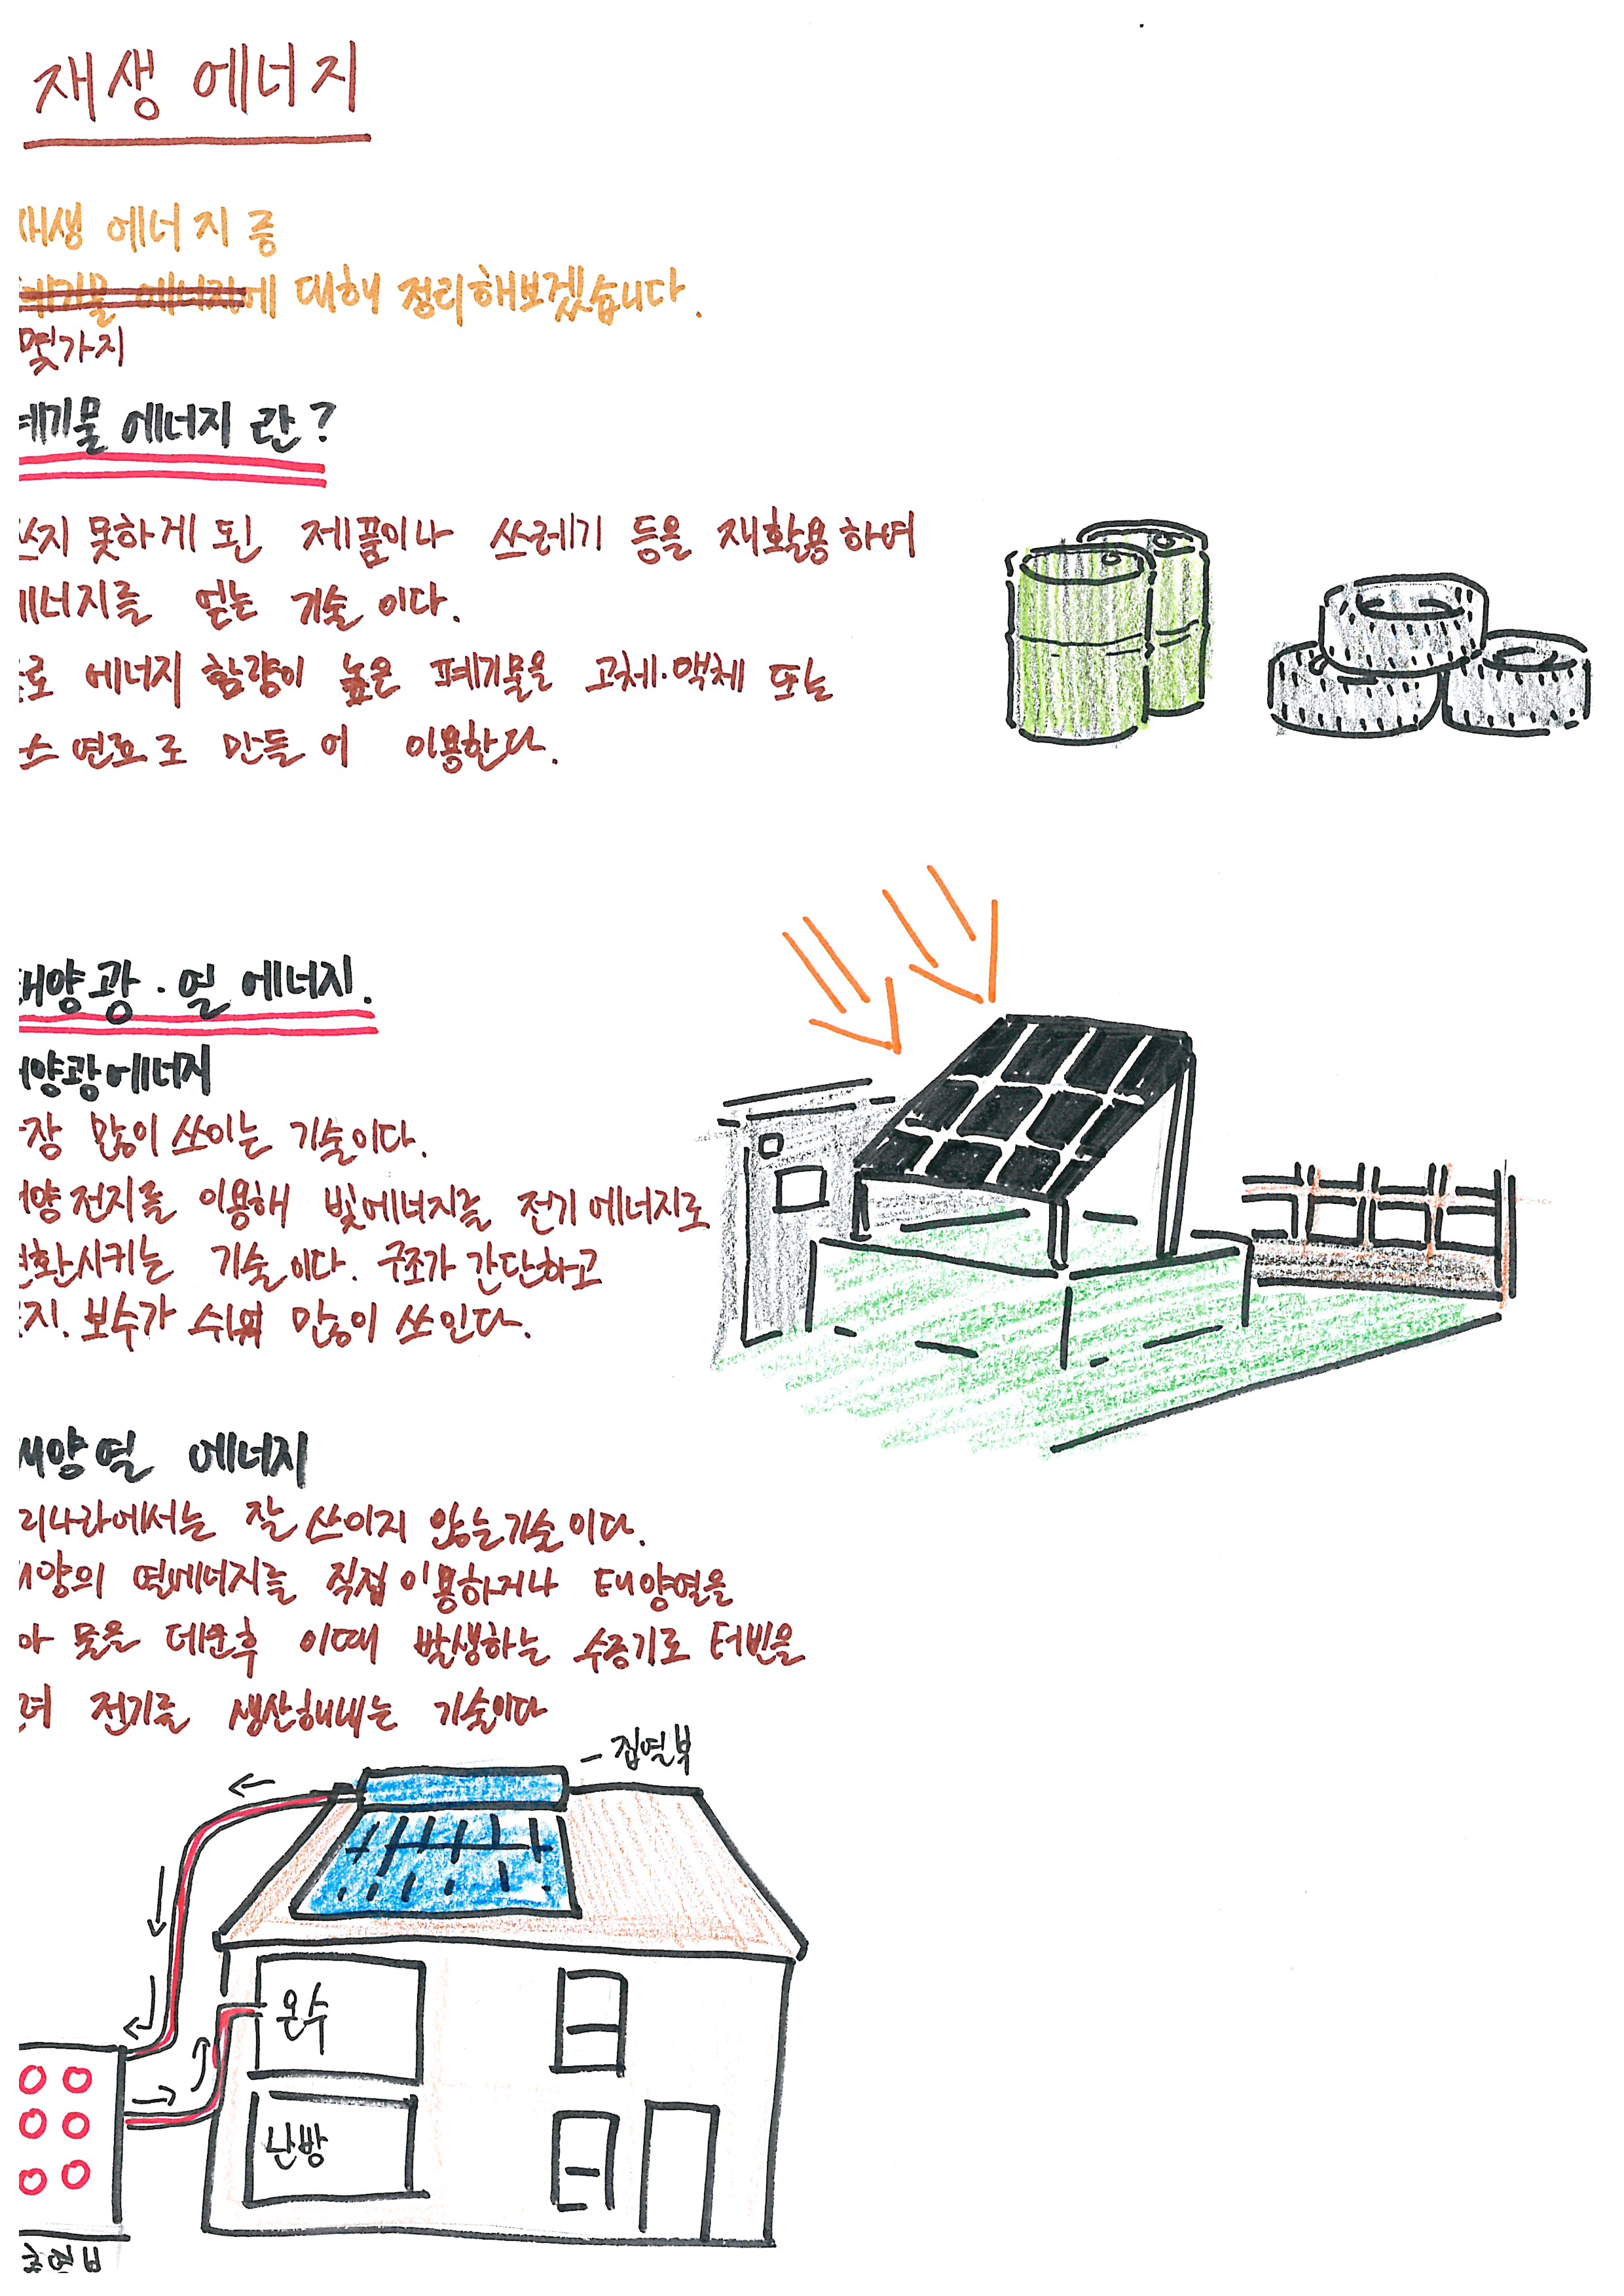 재생 에너지
재생 에너지 중
에 대해 정리해보겠습니다.
몇가지
폐기물 에너지란?
쓰지 못하게 된 제품이나 쓰레기 등을 재활용하여
에너지를 얻는 기술이다.
에너지 함량이 높은 폐기물을 고체·액체 또는
스 연료로 만들어 이용한다.
태양광·열 에너지.
태양광에너지
장 많이 쓰이는 기술이다.
태양전지를 이용해 빛에너지를 전기에너지로
변환시키는 기술이다. 구조가 간단하고
지. 보수가 쉬워 많이 쓰인다.
태양열 에너지
리나라에서는 잘 쓰이지 않는기술이다.
태양의 열에너지를 직접 이용하거나 태양열을
아 물을 데운후 이때 발생하는 수증기로 터빈을
전기를 생산해내는 기술이다
- 집열부
온수
난방
축열부